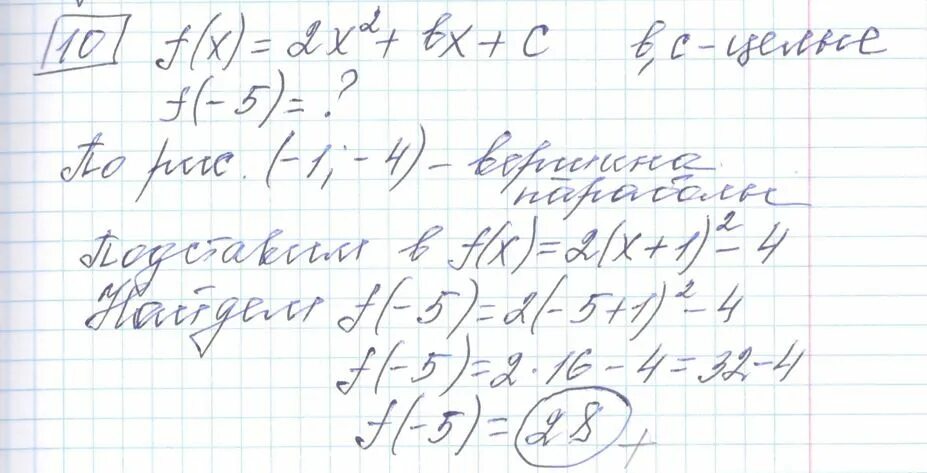 10 f(x) = 2x² + bx + c b, c - целые
f(-5) = ?
По рис. (-1; -4) - вершина
параболы
Подставим в f(x) = 2(x+1)² - 4
Найдем f(-5) = 2(-5+1)² - 4
f(-5) = 2 · 16 - 4 = 32 - 4
f(-5) = 28 +